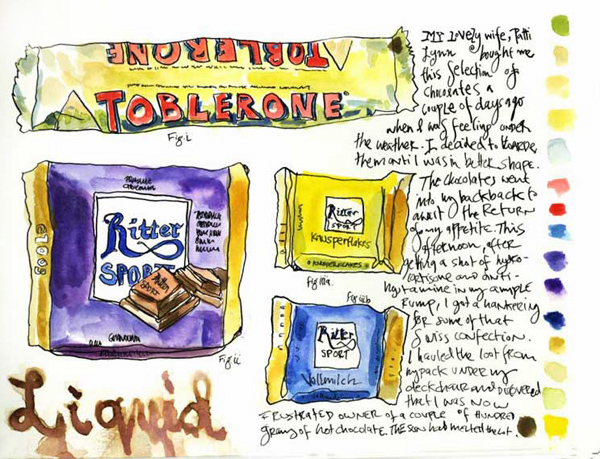 TOBLERONE
TOBLERONE
Fig. i.
Ritter
SPORT
Ritter
SPORT
Fig ii
Ritter
SPORT
Knusperflakes
Fig iiia.
Fig iiib
Ritter
SPORT
Vollmilch
Liquid
My lovely wife, Patti
Lynn bought me
this selection of
chocolates a
couple of days ago
when I was feeling under
the weather. I decided to hoard
them until I was in better shape.
The chocolates went
into my backpack to
await the return
of my appetite. This
afternoon, after
getting a shot of hydro-
cortisone and anti-
hystamine in my ample
rump, I got a hankering
for some of that
Swiss confection.
I hauled the loot from
my pack under my
deckchair and discovered
that I was now
frustrated owner of a couple of hundred
grams of hot chocolate. The sun had melted the lot.